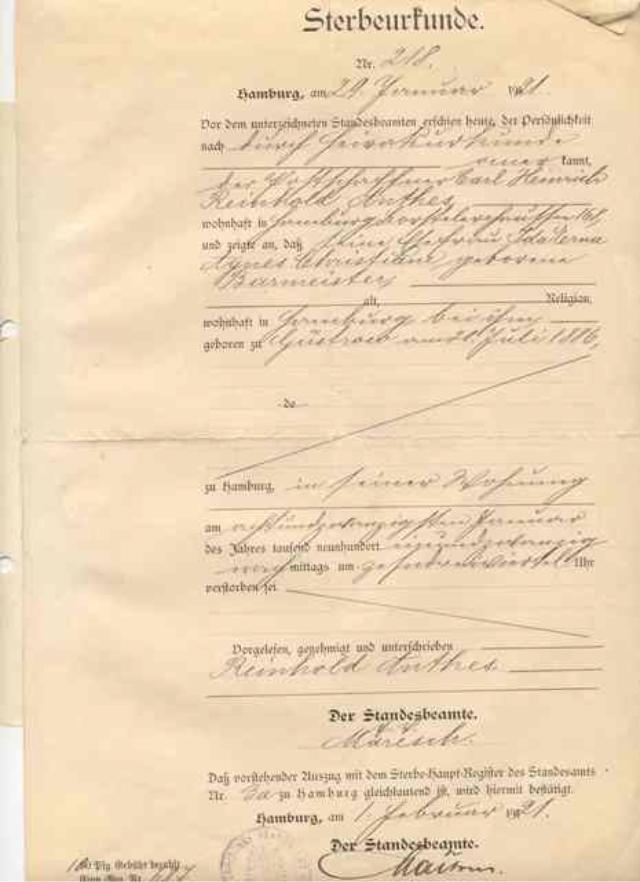 Sterbeurkunde.
Nr. 218.
Hamburg, am 29. Januar 1921.
Vor dem unterzeichneten Standesbeamten erschien heute, der Persönlichkeit
nach durch Heiratsurkunde
aner kannt,
der Postschaffner Carl Heinrich
Reinhold Anthes,
wohnhaft in Hamburg
und zeigte an, daß seine Ehefrau Ida Erna
Agnes Christiane geborene
Barmeister,
alt, Religion,
wohnhaft in Hamburg bei ihm
geboren zu Güstrow am Juli 1886,
de
zu Hamburg, in seiner Wohnung
am achtundzwanzigsten Januar
des Jahres tausend neunhundert einundzwanzig
nach mittags um Uhr
verstorben sei.
Vorgelesen, genehmigt und unterschrieben
Reinhold Anthes
Der Standesbeamte.
Daß vorstehender Auszug mit dem Sterbe-Haupt-Register des Standesamts
Nr. 3a zu Hamburg gleichlautend ist, wird hiermit bestätigt.
Hamburg, am 1. Februar 1921.
Der Standesbeamte.
Pfg. Gebühr bezahlt